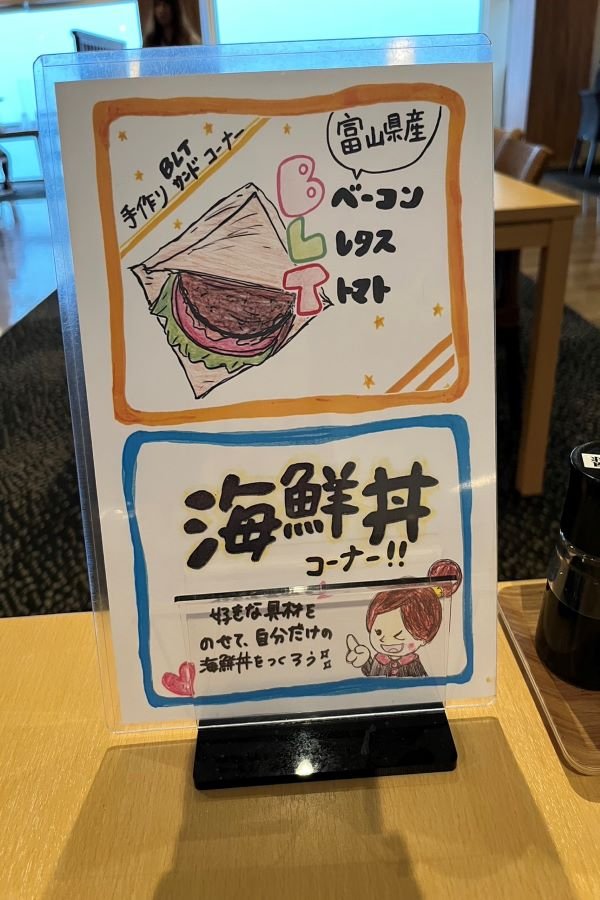 BLT
手作り サンド コーナー
富山県産
B ベーコン
L レタス
T トマト
海鮮丼
コーナー!!
好きな具材を
のせて、自分だけの
海鮮丼をつくろう